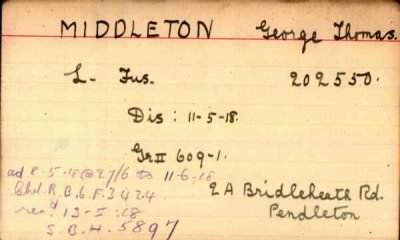 MIDDLETON George Thomas.
L- Fus. 202550.
Dis: 11-5-18.
Gr II 609-1.
ad 8-5-18 @ 27/6 to 11-6-18
Chd. R.B.6.F.3424
rec'd 13-5-18
S.B.H. 5897
2A Bridleheath Rd.
Pendleton